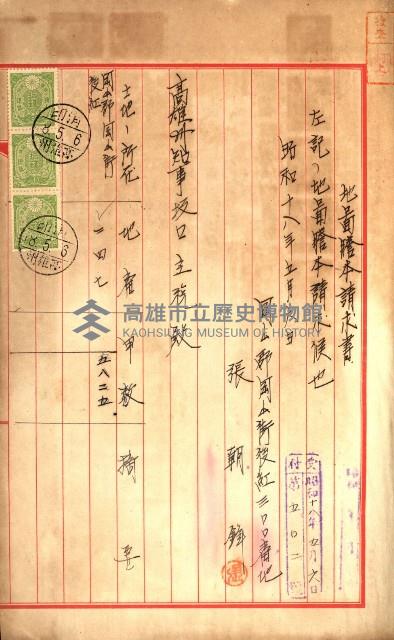 地圖謄本請求書
左記ノ地圖謄本請求候也
昭和十八年五月 日
岡山郡岡山街後紅三〇〇番地
張朝鋒
高雄州知事坂口主稅殿
土地ノ所在 地番 甲數 摘要
岡山郡岡山街後紅 二四七 五八二五
受 昭和十八年五月六日
付 第五〇二號
消印
8.5.6
高雄州
消印
8.5.6
高雄州
高雄市立歷史博物館
KAOHSIUNG MUSEUM OF HISTORY